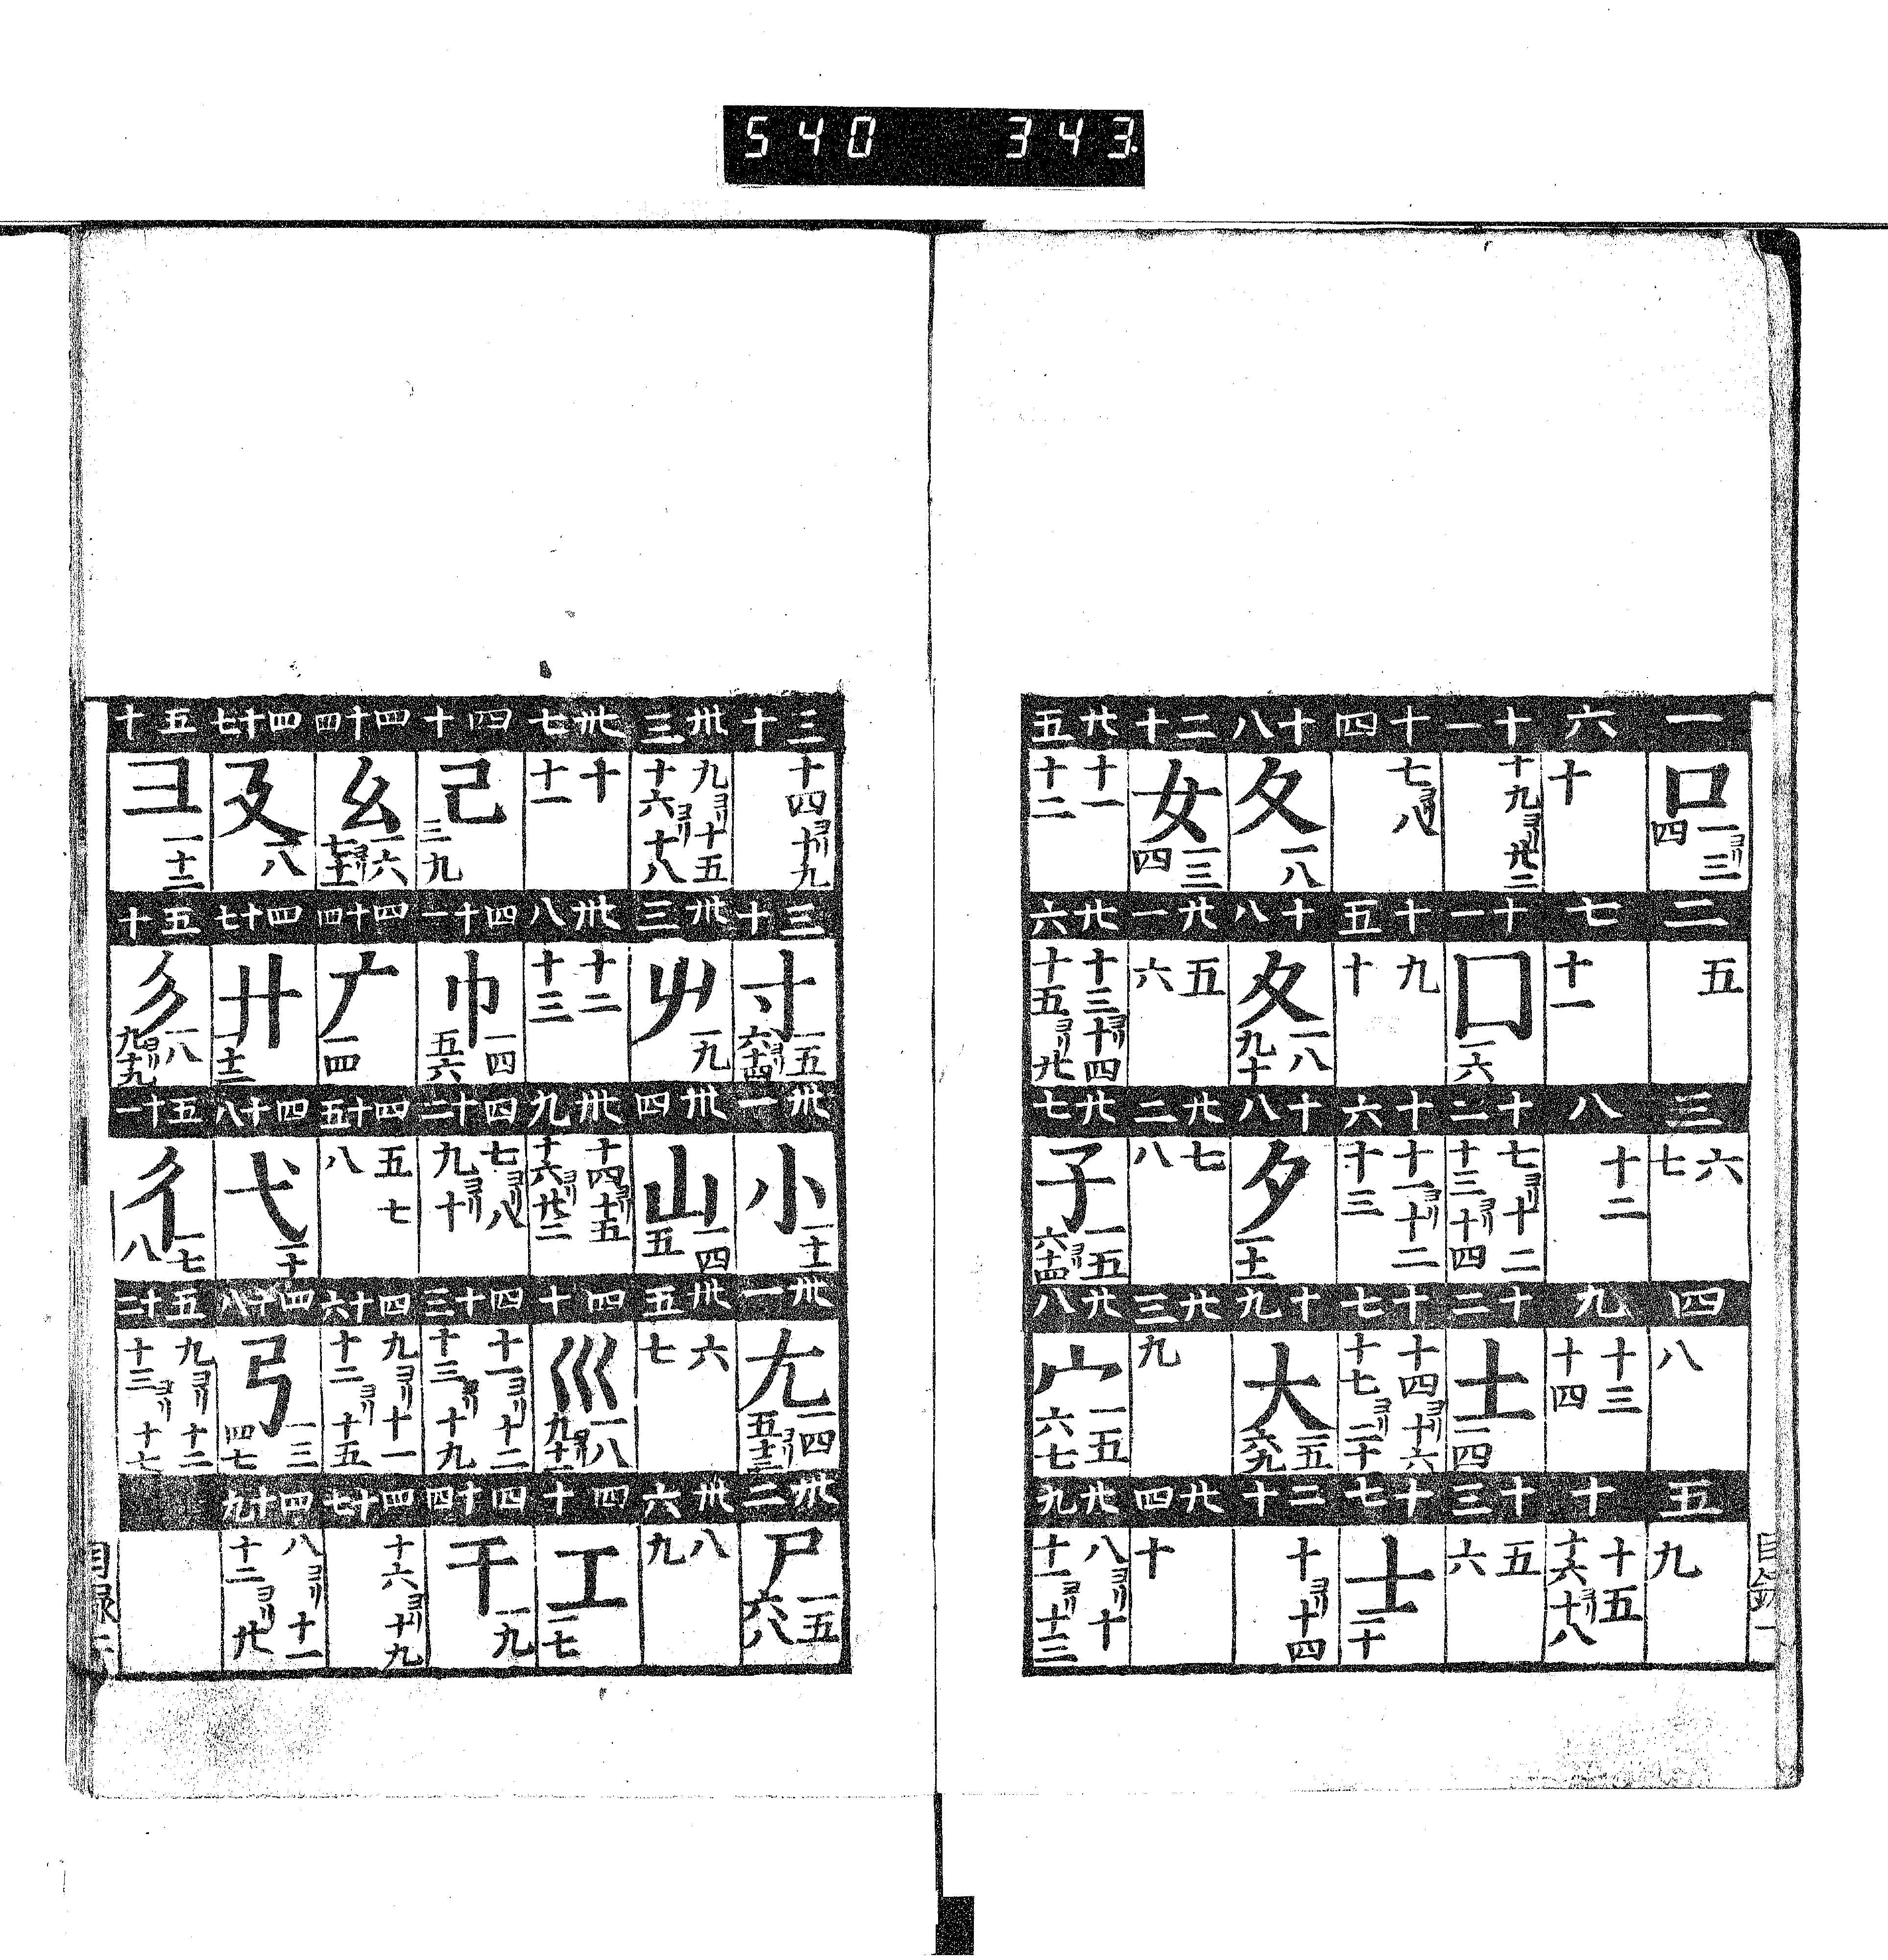 540 343
目錄一
一
口
一ヨリ三
四
二
五
三
六
七
四
八
五
九
六
十
七
十一
八
十二
九
十三
十四
十
十五
十六ヨリ十八
十一
十九ヨリ廿二
十一
囗
一六
十二
七ヨリ十二
十三ヨリ十四
十二
土
一四
十三
五
六
十四
七ヨリ八
十五
九
十
十六
十一ヨリ十二
十三
十七
十四ヨリ十六
十七ヨリ二十
十七
士
一十
十八
夂
一八
十八
夊
一八
九十
十八
夕
一十一
十九
大
一五
六九
二十
十ヨリ十四
二十
女
一三
四
廿一
五
六
廿二
七
八
廿三
九
廿四
十
廿五
十一
十二
廿六
十三ヨリ十四
十五ヨリ廿
廿七
子
一五
六ヨリ十四
廿八
宀
一五
六七
廿九
八ヨリ十
十一ヨリ十三
三十
十四ヨリ十九
三十
寸
一五
六ヨリ十四
卅一
小
一十一
卅一
尢
一四
五ヨリ十三
卅二
尸
一五
六八
卅三
九ヨリ十五
十六ヨリ十八
卅三
屮
一九
卅四
山
一四
五
卅五
六
七
卅六
八
九
卅七
十
十一
卅八
十二
十三
卅九
十四ヨリ十五
十六ヨリ廿二
四十
巛
一八
九ヨリ十二
四十
工
一七
四十
己
三九
四十一
巾
一四
五六
四十二
七ヨリ八
九ヨリ十
四十三
十一ヨリ十二
十三ヨリ十九
四十四
干
一九
四十四
幺
一六
七ヨリ十一
四十四
广
一四
四十五
五七
八
四十六
九ヨリ十一
十二ヨリ十五
四十七
十六ヨリ十九
四十七
廴
一八
四十七
廾
一十二
四十八
弋
一十
四十八
弓
一三
四七
四十九
八ヨリ十一
十二ヨリ廿
五十
彐
一十二
五十
彡
一八
九ヨリ十九
五十一
彳
一七
八
五十二
九ヨリ十二
十三ヨリ十七
目録